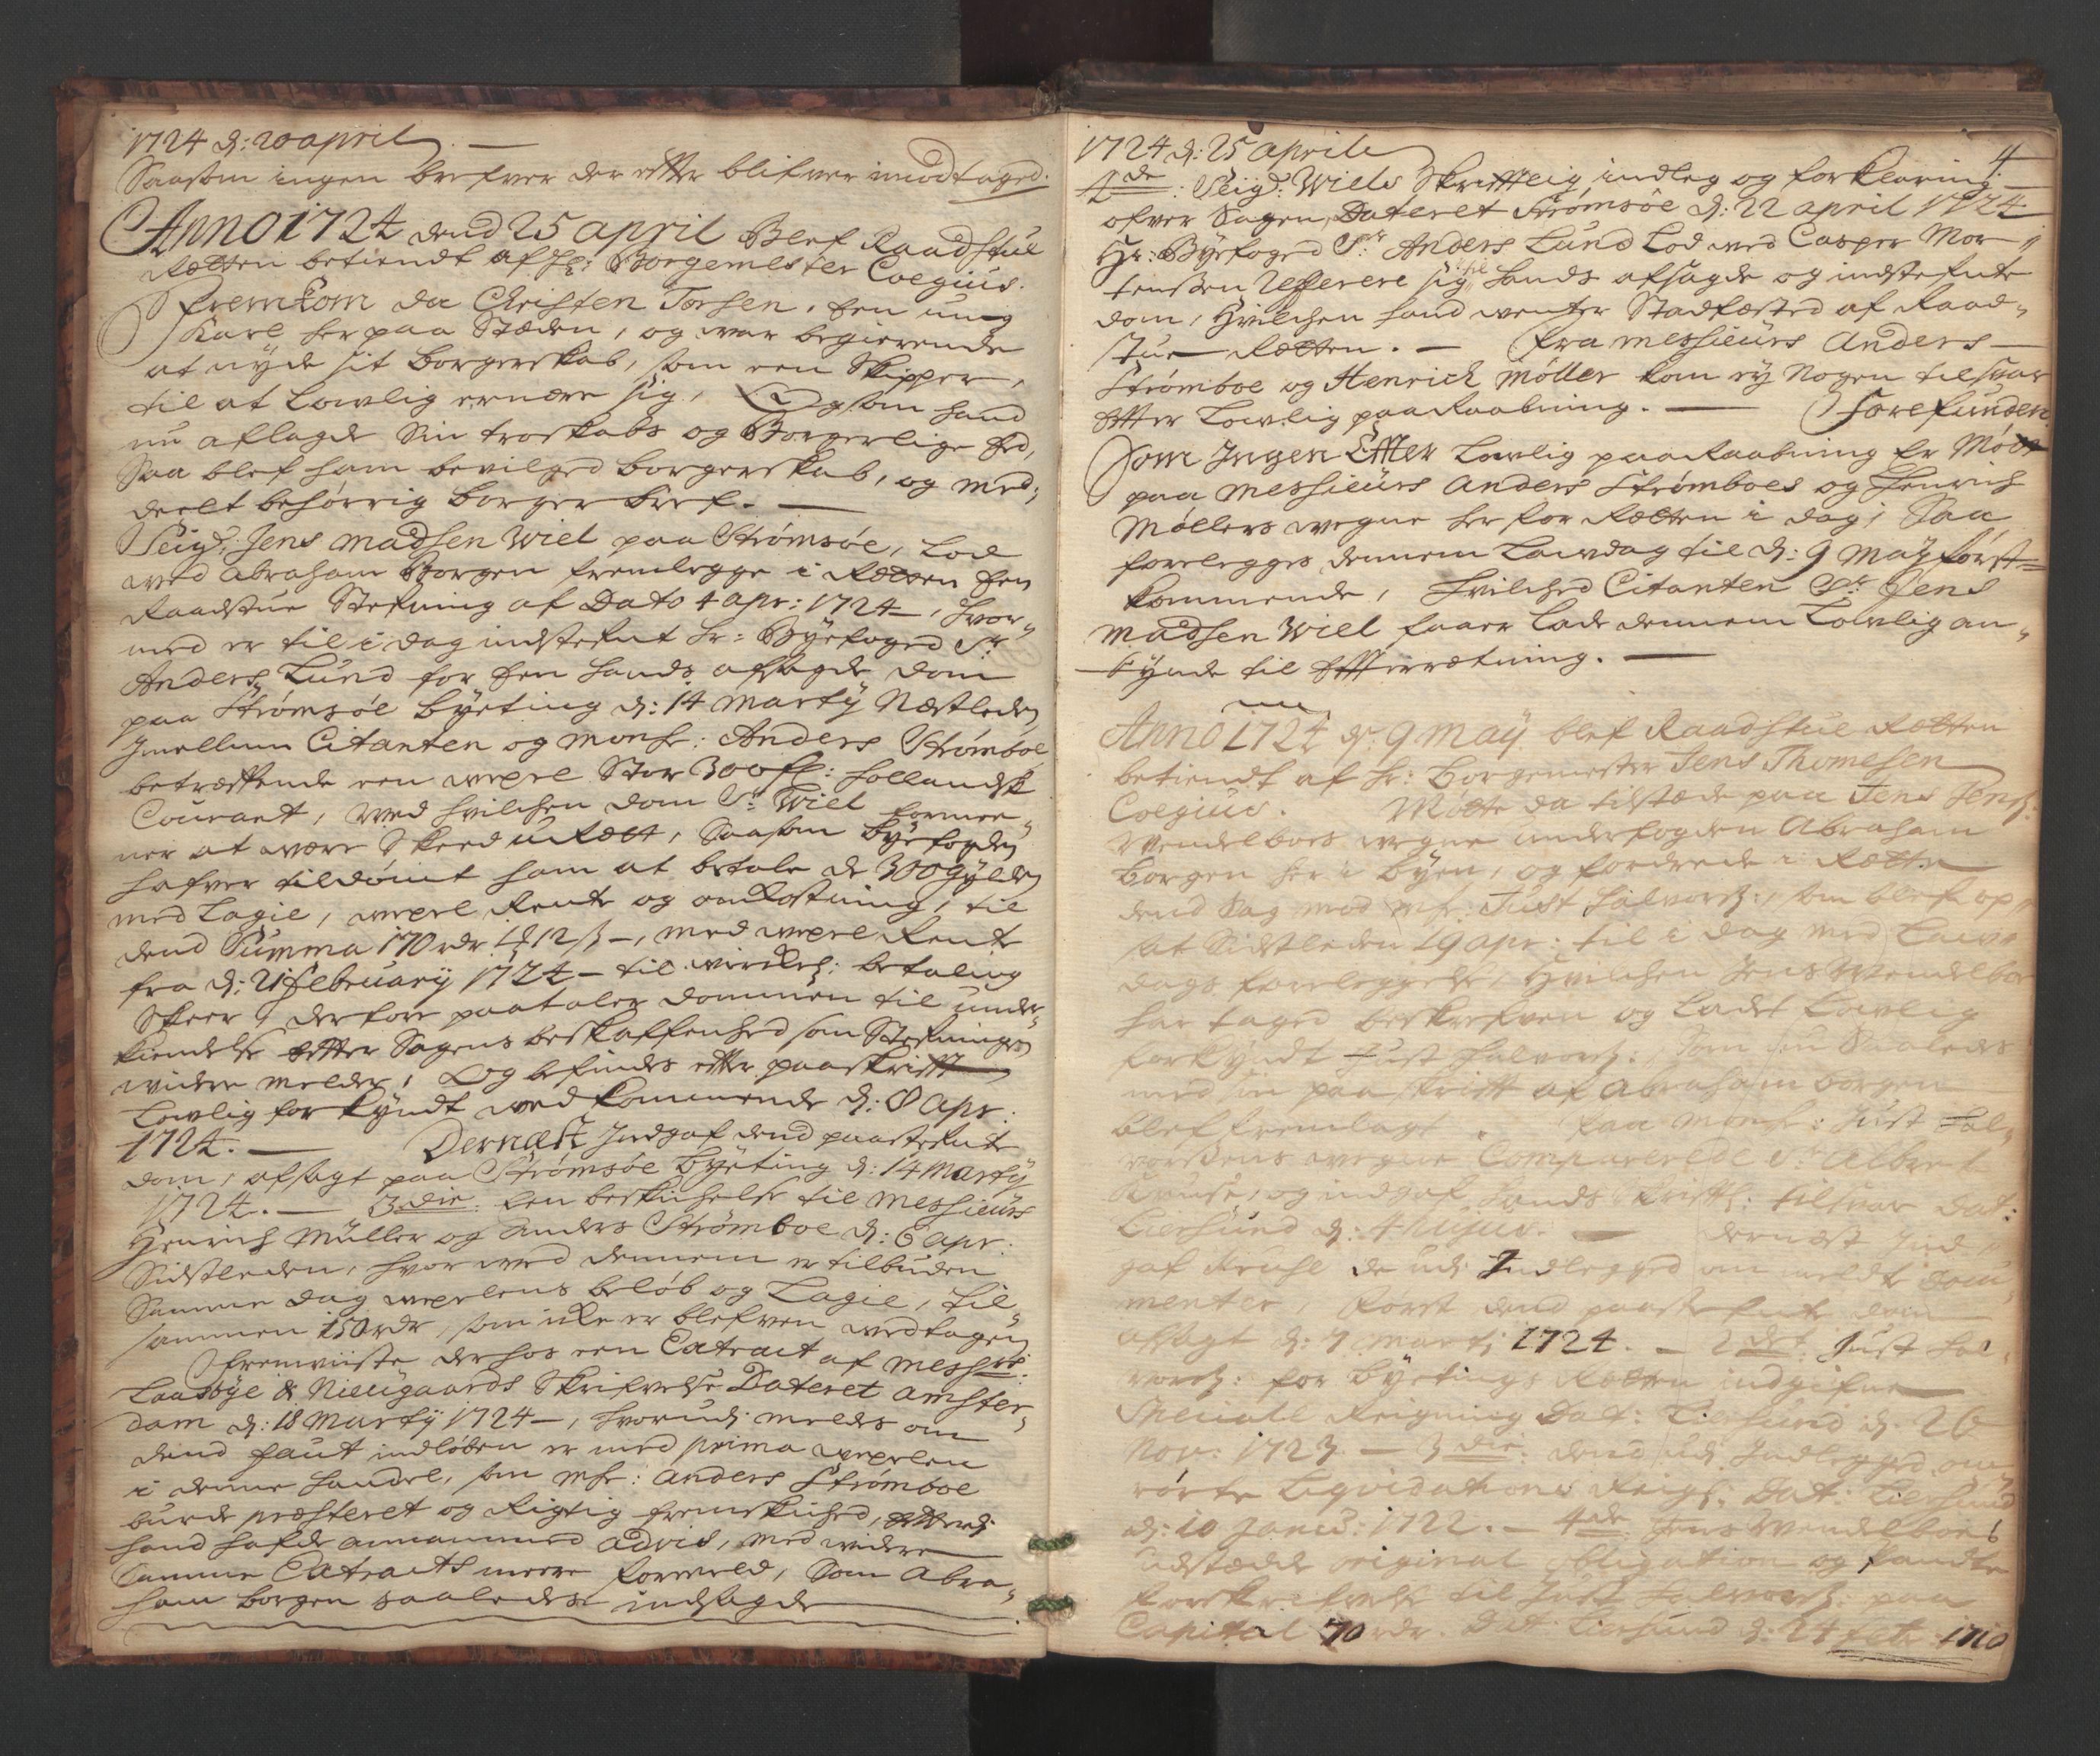 1724 d: 20 april
Saasom ingen brefver der efter blifver imodtaged.
Anno 1724 dend 25 april Blef Raadstue
Rætten betiendt af Hr: Borgemester Coegius.
Fremkom da Christen Torsen, En ung
Karl her paa Stæden, og war begierende
at nyde sit borgerskab, som een Skipper,
til at Lowlig ernære sig, Og som hand
nu aflagde Sin troskabs og Borgerlige Eed,
Saa blef ham bevilged borgerskab, og med¬
deelt behørrig borger bref. —
Seigr: Jens Madsen Wiel paa Strømsøe, Lod
wed Abraham Borgen fremlegge i Rætten En
Raadstue Stefning af Dato 4 apr: 1724 –, hvor¬
med er til i dag indstefnt Hr: Byefoged Sr
Anders Lund for En hands afsagde dom
paa Strømsøe byeting d: 14 Marty Næstleden
Imellum Citanten og Monsr: Anders Strømboe
betræffende een wexel Stor 300 fl: hollandsk
Courant, wed hvilchen dom Sr Wiel formee¬
ner at være Skeed uRætt, Saasom byefogden
hafver tildømt ham at betale de 300 gylden
med Lagie, wexel Rente og omkostning, til
dend Summa 170 rdr 1 ort 12 s –, med wexel Rente
fra d: 21 February 1724 – til wirkel: betaling
Skeer, derfore paataler dommen til under¬
kiendelse efter Sagens beskaffenhed som Stefningen
widere melder, Og befindes efter paaskrifft
Lowlig forkyndt wedkommende d: 8 apr:
1724. — Dernæst Indgaf dend paastefnte
dom, afsagt paa Strømsøe byeting d: 14 Marty
1724. — 3die: En beskichelse til Messieurs
Henrich Müller og Anders Strømboe d: 6 apr:
Sidstleden, hvorwed dennem er tilbuden
Samme dag wexelens beløb og Lagie, til¬
sammen 150 rdr, som icke er blefven wedtagen
Fremwiiste derhos een Extract af Messrs:
Laasbye & Nieugaards Skrifvelse Dateret Amster¬
dam d: 18 Marty 1724 –, hvorudj meldes om
dend faut indløben er med prima wexelen
i denne handel, som Msr: Anders Strømboe
burde præsteret og Rigtig fremskiched, efterdj
hand hafde annammed advis, med widere
Samme Extracts mere formeld, Som Abra¬
ham borgen saaledes indlagde
1724 d: 25 Aprile 4
4de: Seigr: Wiels Skrifftlig indleg og forklaring
ofver Sagen, Dateret Strømsøe d: 22 april 1724
Hr: Byefoged Sr Anders Lund Lod wed Casper Mor¬
tensen Refferere sig til hands afsagde og indstefnte
dom, Hvilchen hand wenter Stadfæsted af Raad¬
stue Rætten. — Fra Messieurs Anders
Strømboe og Henrich Möller kom ey Nogen til svar
efter Lowlig paaraabning. — Forefunden
Som Ingen Effter Lowlig paaraabning Er Mødt
paa Messieurs Anders Strømboes og Henrich
Møllers wegne her for Rætten i dag; Saa
forelegges dennem Lawdag til d: 9 May først¬
kommende, Hvilched Citanten Sr Jens
Madsen Wiel faaer Lade dennem Lowlig an¬
kynde til Effterrætning. —
Anno 1724 d: 9 May blef Raadstue Rætten
betiendt af Hr: Borgemester Jens Thomesen
Coegius. Mødte da tilstæde paa Jens Jens:
Wendelboes wegne underfogden Abraham
Borgen her i byen, og fordrede i Rætte
dend Sag mod Msr: Just Halvors:, som blef op¬
sat Sidstleden 19 apr: til i dag med Law¬
dags foreleggelse, Hvilchen Jens Wendelboe
har taged beskrefven og Ladet Lowlig
forkyndt Just Halvors: Som nu Saaledes
med sin paaskrifft af Abraham borgen
blef fremlagt. Paa Monsr: Just Hal¬
vorsens wegne Comparerede Sr Albret
Kruse, og indgaf hands Skriftl: tilsvar dat:
Liersund d: 4 hujus. — dernæst Ind¬
gaf Kruse de udj Indlegged anmeldte docu¬
menter, Først dend paastefnte dom
afsagt d: 7 Marti 1724. — 2det: Just Hal¬
vors: for byetings Rætten indgifne
Speciale Reigning Dat: Liersund d: 26
Nov: 1723 — 3die: dend udj Indlegged om¬
rørte Liqvidations Reigs: Dat: Liersund
d: 10 Janu: 1722. — 4de: Jens Wendelboes
udstædde original obligation og pandte
forskrifvelse til Just Halvors: paa
Capital 70 rdr. Dat: Liersund d: 24 febr: 1710